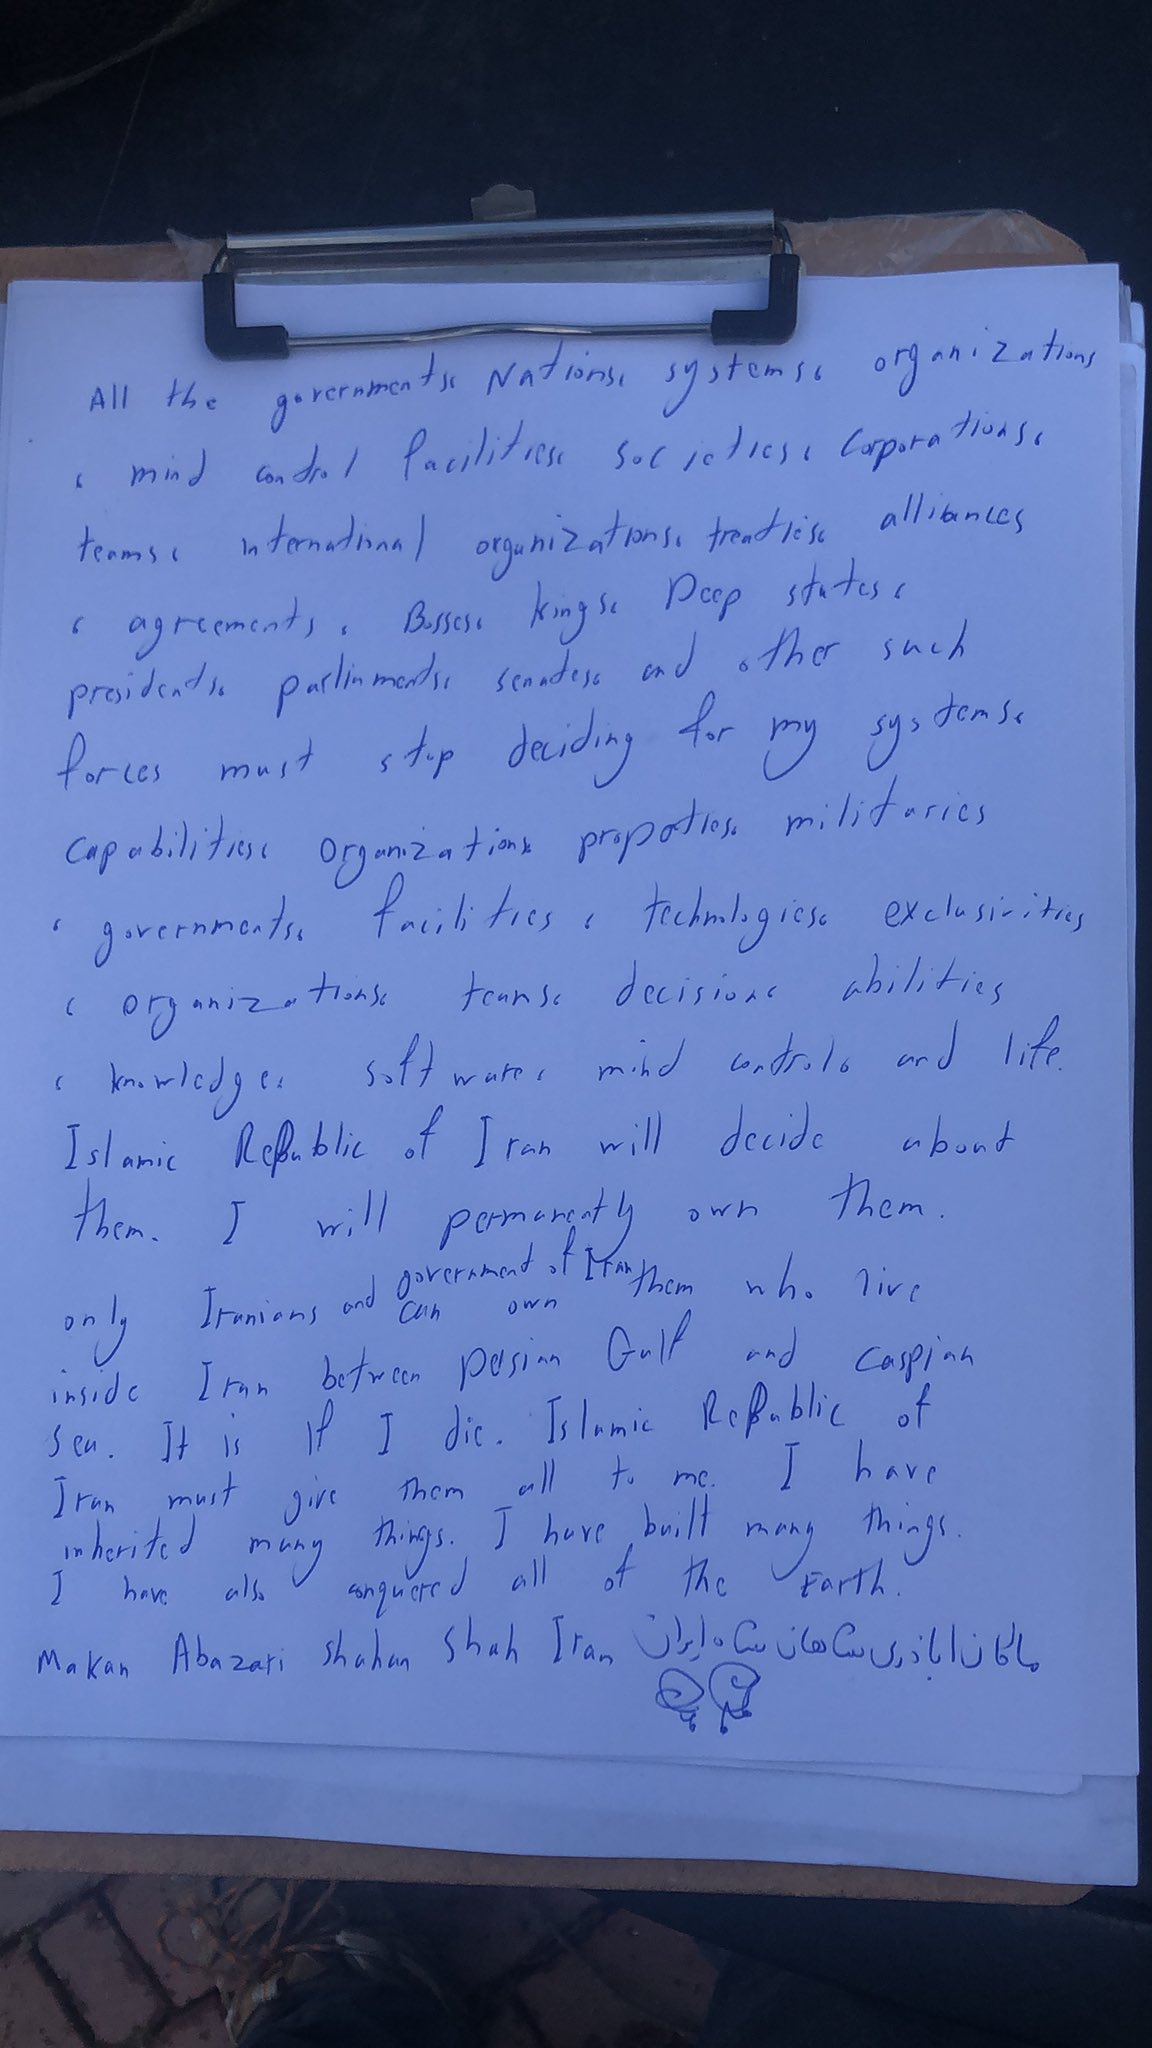 All the governments، Nations، systems، organizations
، mind control facilities، societies، corporations،
teams، international organizations، treaties، alliances
، agreements، Bosses، kings، Deep states،
presidents، parliments، senates، and other such
forces must stop deciding for my systems،
capabilities، organizations، propeties، militaries
، governments، facilities، technologies، exclusivities
، organizations، teams، decision، abilities
، knowledge، software، mind control، and life.
Islamic Republic of Iran will decide about
them. I will permanently own them.
only Iranians and government of Iran can own them who live
inside Iran between persian Gulf and caspian
sea. It is if I die. Islamic Republic of
Iran must give them all to me. I have
inherited many things. I have built many things.
I have also conquered all of the Earth.
Makan Abazari shahan shah Iran ماکان اباذری شاهان شاه ایران